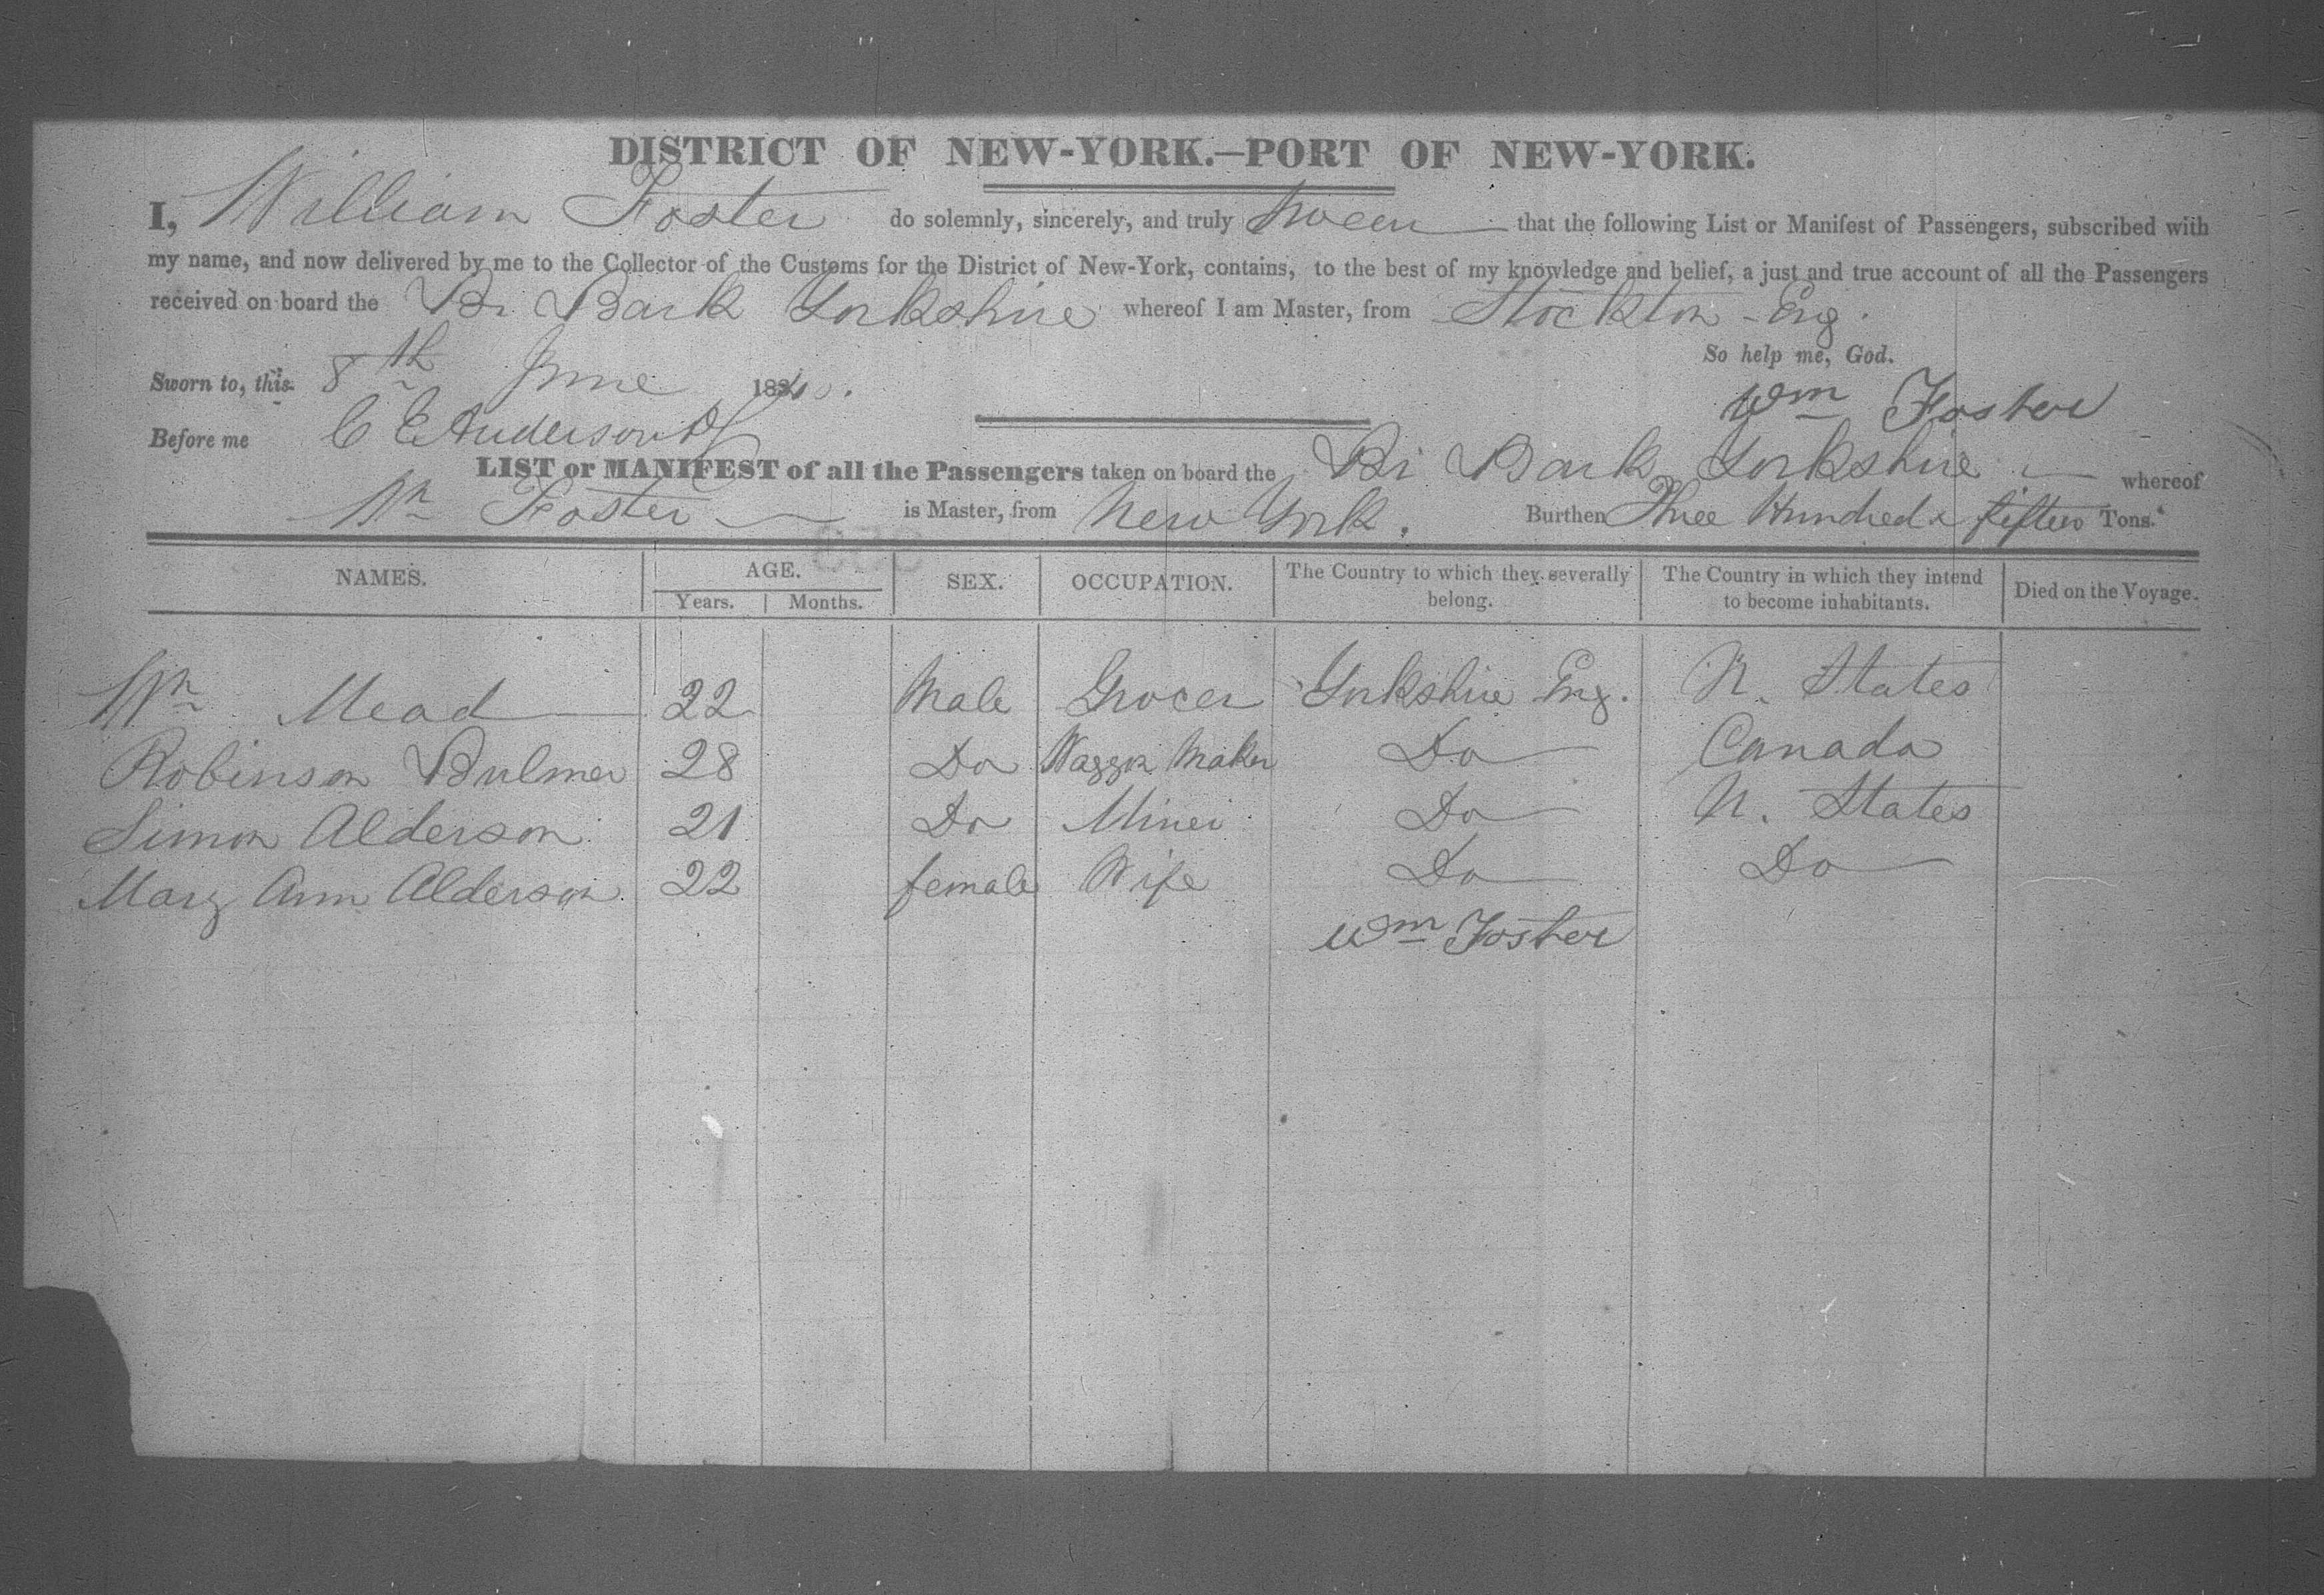 DISTRICT OF NEW-YORK.—PORT OF NEW-YORK.
I, William Foster do solemnly, sincerely, and truly swear that the following List or Manifest of Passengers, subscribed with
my name, and now delivered by me to the Collector of the Customs for the District of New-York, contains, to the best of my knowledge and belief, a just and true account of all the Passengers
received on board the Br. Bark Yorkshire whereof I am Master, from Stockton - Eng.
So help me, God.
Sworn to, this 8th June 1840.
Wm Foster
Before me C E Anderson
LIST or MANIFEST of all the Passengers taken on board the Br Bark Yorkshire whereof
Wm Foster is Master, from New York. Burthen Three Hundred & fifteen Tons.
NAMES. AGE. SEX. OCCUPATION. The Country to which they severally belong. The Country in which they intend to become inhabitants. Died on the Voyage.
Years. Months.
Wm Mead 22 Male Grocer Yorkshire Eng. U. States
Robinson Bulmer 28 Do Waggon Maker Do Canada
Simon Alderson 21 Do Miner Do U. States
Mary Ann Alderson 22 female Wife Do Do
Wm Foster